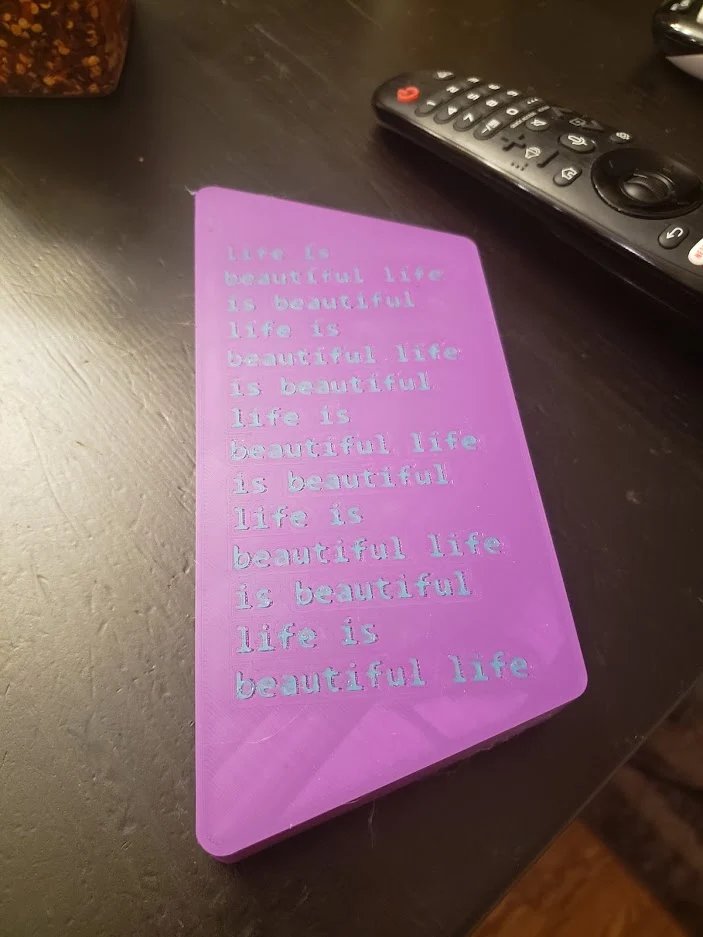 life is
beautiful life
is beautiful
life is
beautiful life
is beautiful
life is
beautiful life
is beautiful
life is
beautiful life
is beautiful
life is
beautiful life